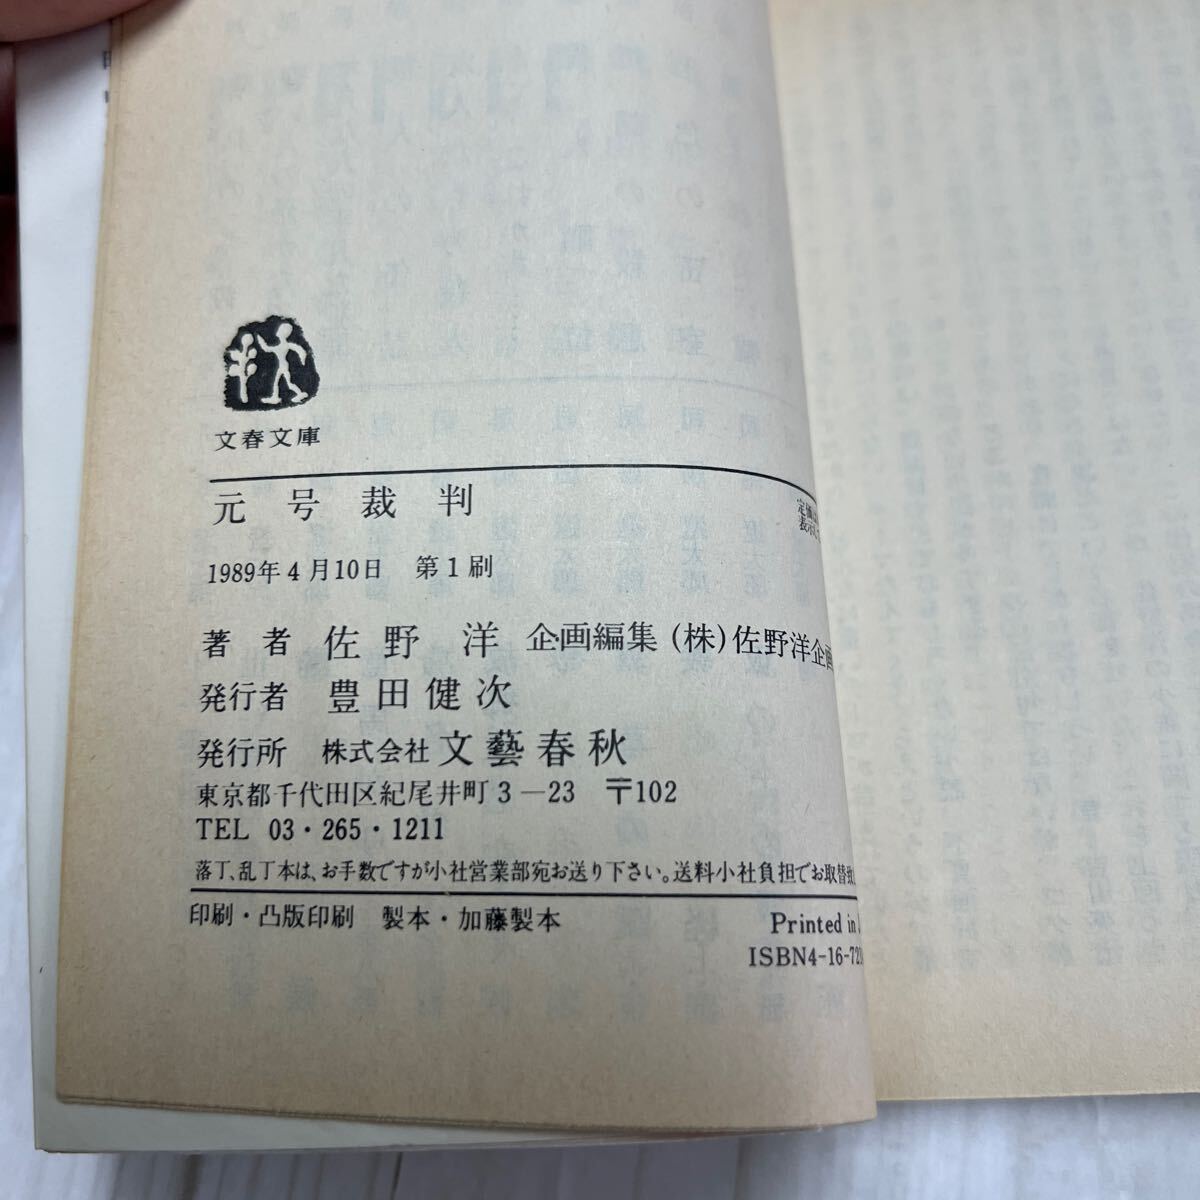 文春文庫
元号裁判
定価
表示
1989年4月10日 第1刷
著者 佐野洋 企画編集(株)佐野洋企画
発行者 豊田健次
発行所 株式会社文藝春秋
東京都千代田区紀尾井町3―23 〒102
TEL 03・265・1211
落丁、乱丁本は、お手数ですが小社営業部宛お送り下さい。送料小社負担でお取替致
印刷・凸版印刷 製本・加藤製本
Printed in
ISBN4-16-72